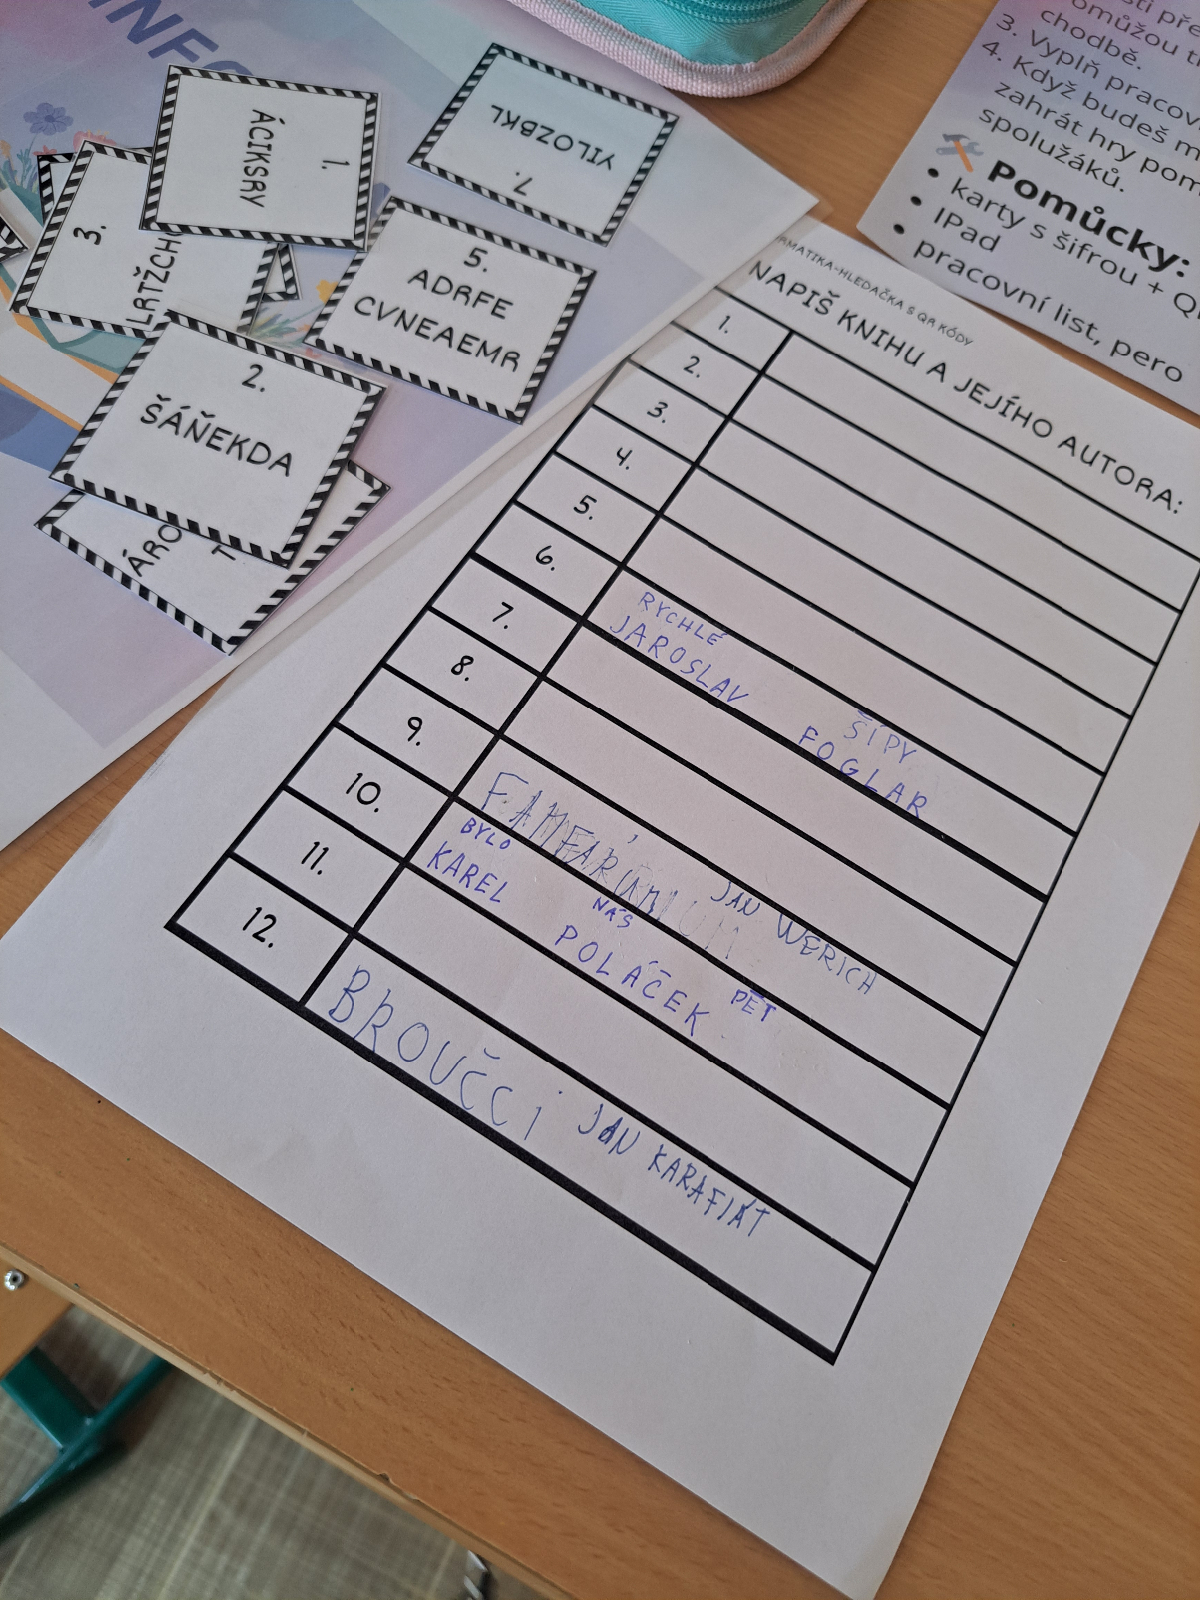 INFO
1.
ÁCIKSRY
7.
YILOZBKL
3.
LRTŽCH
5.
ADRFE
CVNEAEMR
2.
ŠÁŇEKDA
ÁRO
T
chodbě.
3. Vyplň pracov
4. Když budeš m
zahrát hry pom
spolužáků.
Pomůcky:
• karty s šifrou + Q
• IPad
• pracovní list, pero
RMATIKA-HLEDAČKA S QR KÓDY
NAPIŠ KNIHU A JEJÍHO AUTORA:
1.
2.
3.
4.
5.
6.
RYCHLÉ ŠÍPY
JAROSLAV FOGLAR
7.
8.
9.
JAN WERICH
10.
BYLO NÁS PĚT
KAREL POLÁČEK
11.
12.
BROUČCI JAN KARAFIÁT